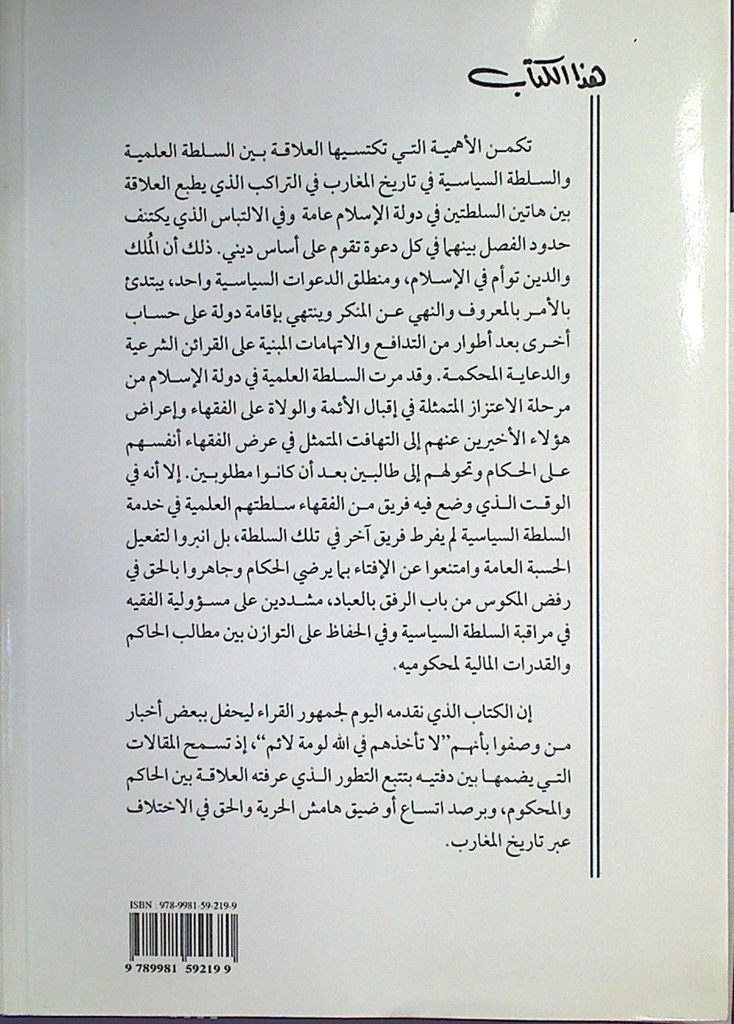 هذا الكتاب
تكمن الأهمية التي تكتسيها العلاقة بين السلطة العلمية
والسلطة السياسية في تاريخ المغارب في التراكب الذي يطبع العلاقة
بين هاتين السلطتين في دولة الإسلام عامة وفي الالتباس الذي يكتنف
حدود الفصل بينهما في كل دعوة تقوم على أساس ديني. ذلك أن المُلك
والدين توأم في الإسلام، ومنطلق الدعوات السياسية واحد، يبتدئ
بالأمر بالمعروف والنهي عن المنكر وينتهي بإقامة دولة على حساب
أخرى بعد أطوار من التدافع والاتهامات المبنية على القرائن الشرعية
والدعاية المحكمة. وقد مرت السلطة العلمية في دولة الإسلام من
مرحلة الاعتزاز المتمثلة في إقبال الأئمة والولاة على الفقهاء وإعراض
هؤلاء الأخيرين عنهم إلى التهافت المتمثل في عرض الفقهاء أنفسهم
على الحكام وتحولهم إلى طالبين بعد أن كانوا مطلوبين. إلا أنه في
الوقت الذي وضع فيه فريق من الفقهاء سلطتهم العلمية في خدمة
السلطة السياسية لم يفرط فريق آخر في تلك السلطة، بل انبروا لتفعيل
الحسبة العامة وامتنعوا عن الإفتاء بما يرضي الحكام وجاهروا بالحق في
رفض المكوس من باب الرفق بالعباد، مشددين على مسؤولية الفقيه
في مراقبة السلطة السياسية وفي الحفاظ على التوازن بين مطالب الحاكم
والقدرات المالية لمحكوميه.
إن الكتاب الذي نقدمه اليوم لجمهور القراء ليحفل ببعض أخبار
من وصفوا بأنهم "لا تأخذهم في الله لومة لائم"، إذ تسمح المقالات
التي يضمها بين دفتيه بتتبع التطور الذي عرفته العلاقة بين الحاكم
والمحكوم، وبرصد اتساع أو ضيق هامش الحرية والحق في الاختلاف
عبر تاريخ المغارب.
ISBN : 978-9981-59-219-9
9 789981 592199